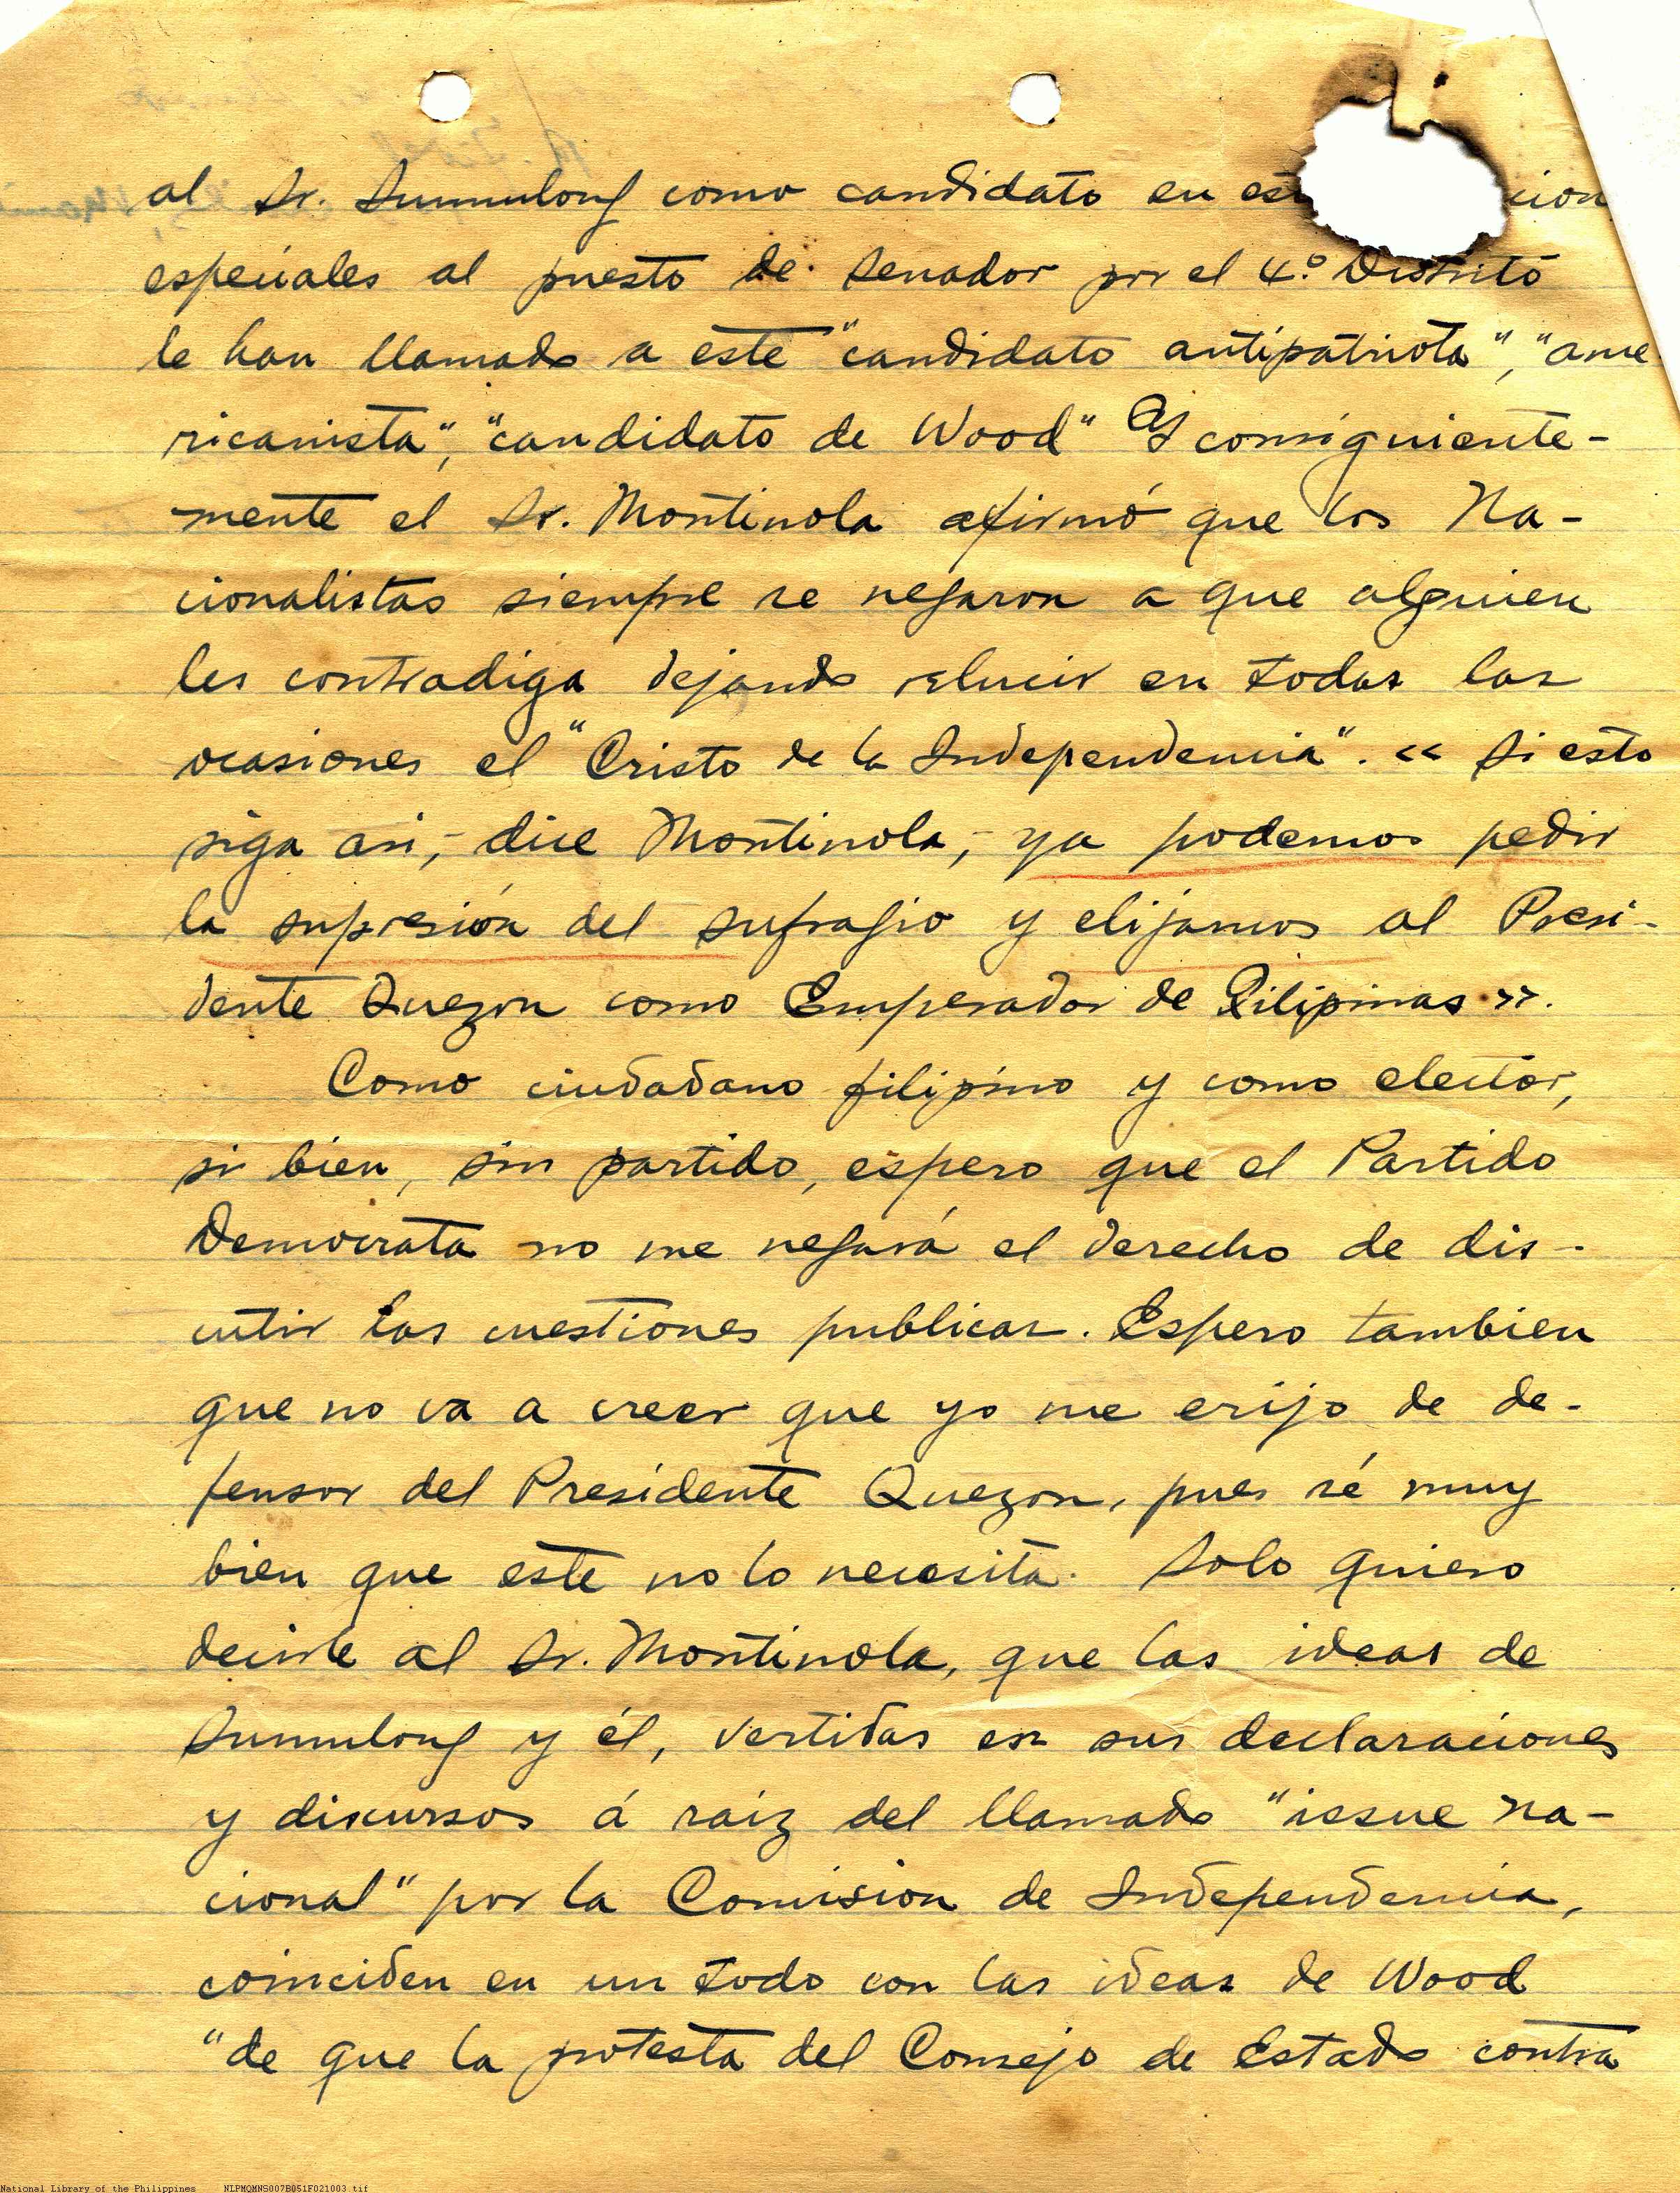 al Sr. Sumulong como candidato en est cion
especiales al puesto de Senador por el 4.º Distrito
le han llamado a este "candidato antipatriota", "ame
ricanista", "candidato de Wood" Y consiguiente-
mente el Sr. Montinola afirmó que los Na-
cionalistas siempre se negaron a que alguien
les contradiga dejando relucir en todas las
ocasiones el "Cristo de la Independencia". << Si esto
siga asi, - dice Montinola, - ya podemos pedir
la supresión del sufragio y elijamos al Presi-
dente Quezon como Emperador de Filipinas >>.
Como ciudadano filipino y como elector,
si bien, sin partido, espero que el Partido
Democrata no me negará el derecho de dis-
cutir las cuestiones publicas. Espero tambien
que no va a creer que yo me erijo de de-
fensor del Presidente Quezon, pues sé muy
bien que este no lo necesita. Solo quiero
decirle al Sr. Montinola, que las ideas de
Sumulong y él, vertidas en sus declaraciones
y discursos á raiz del llamado "issue na-
cional" por la Comision de Independencia,
coinciden en un todo con las ideas de Wood
"de que la protesta del Consejo de Estado contra
National Library of the Philippines NLPMQMNS007B051F021003.tif